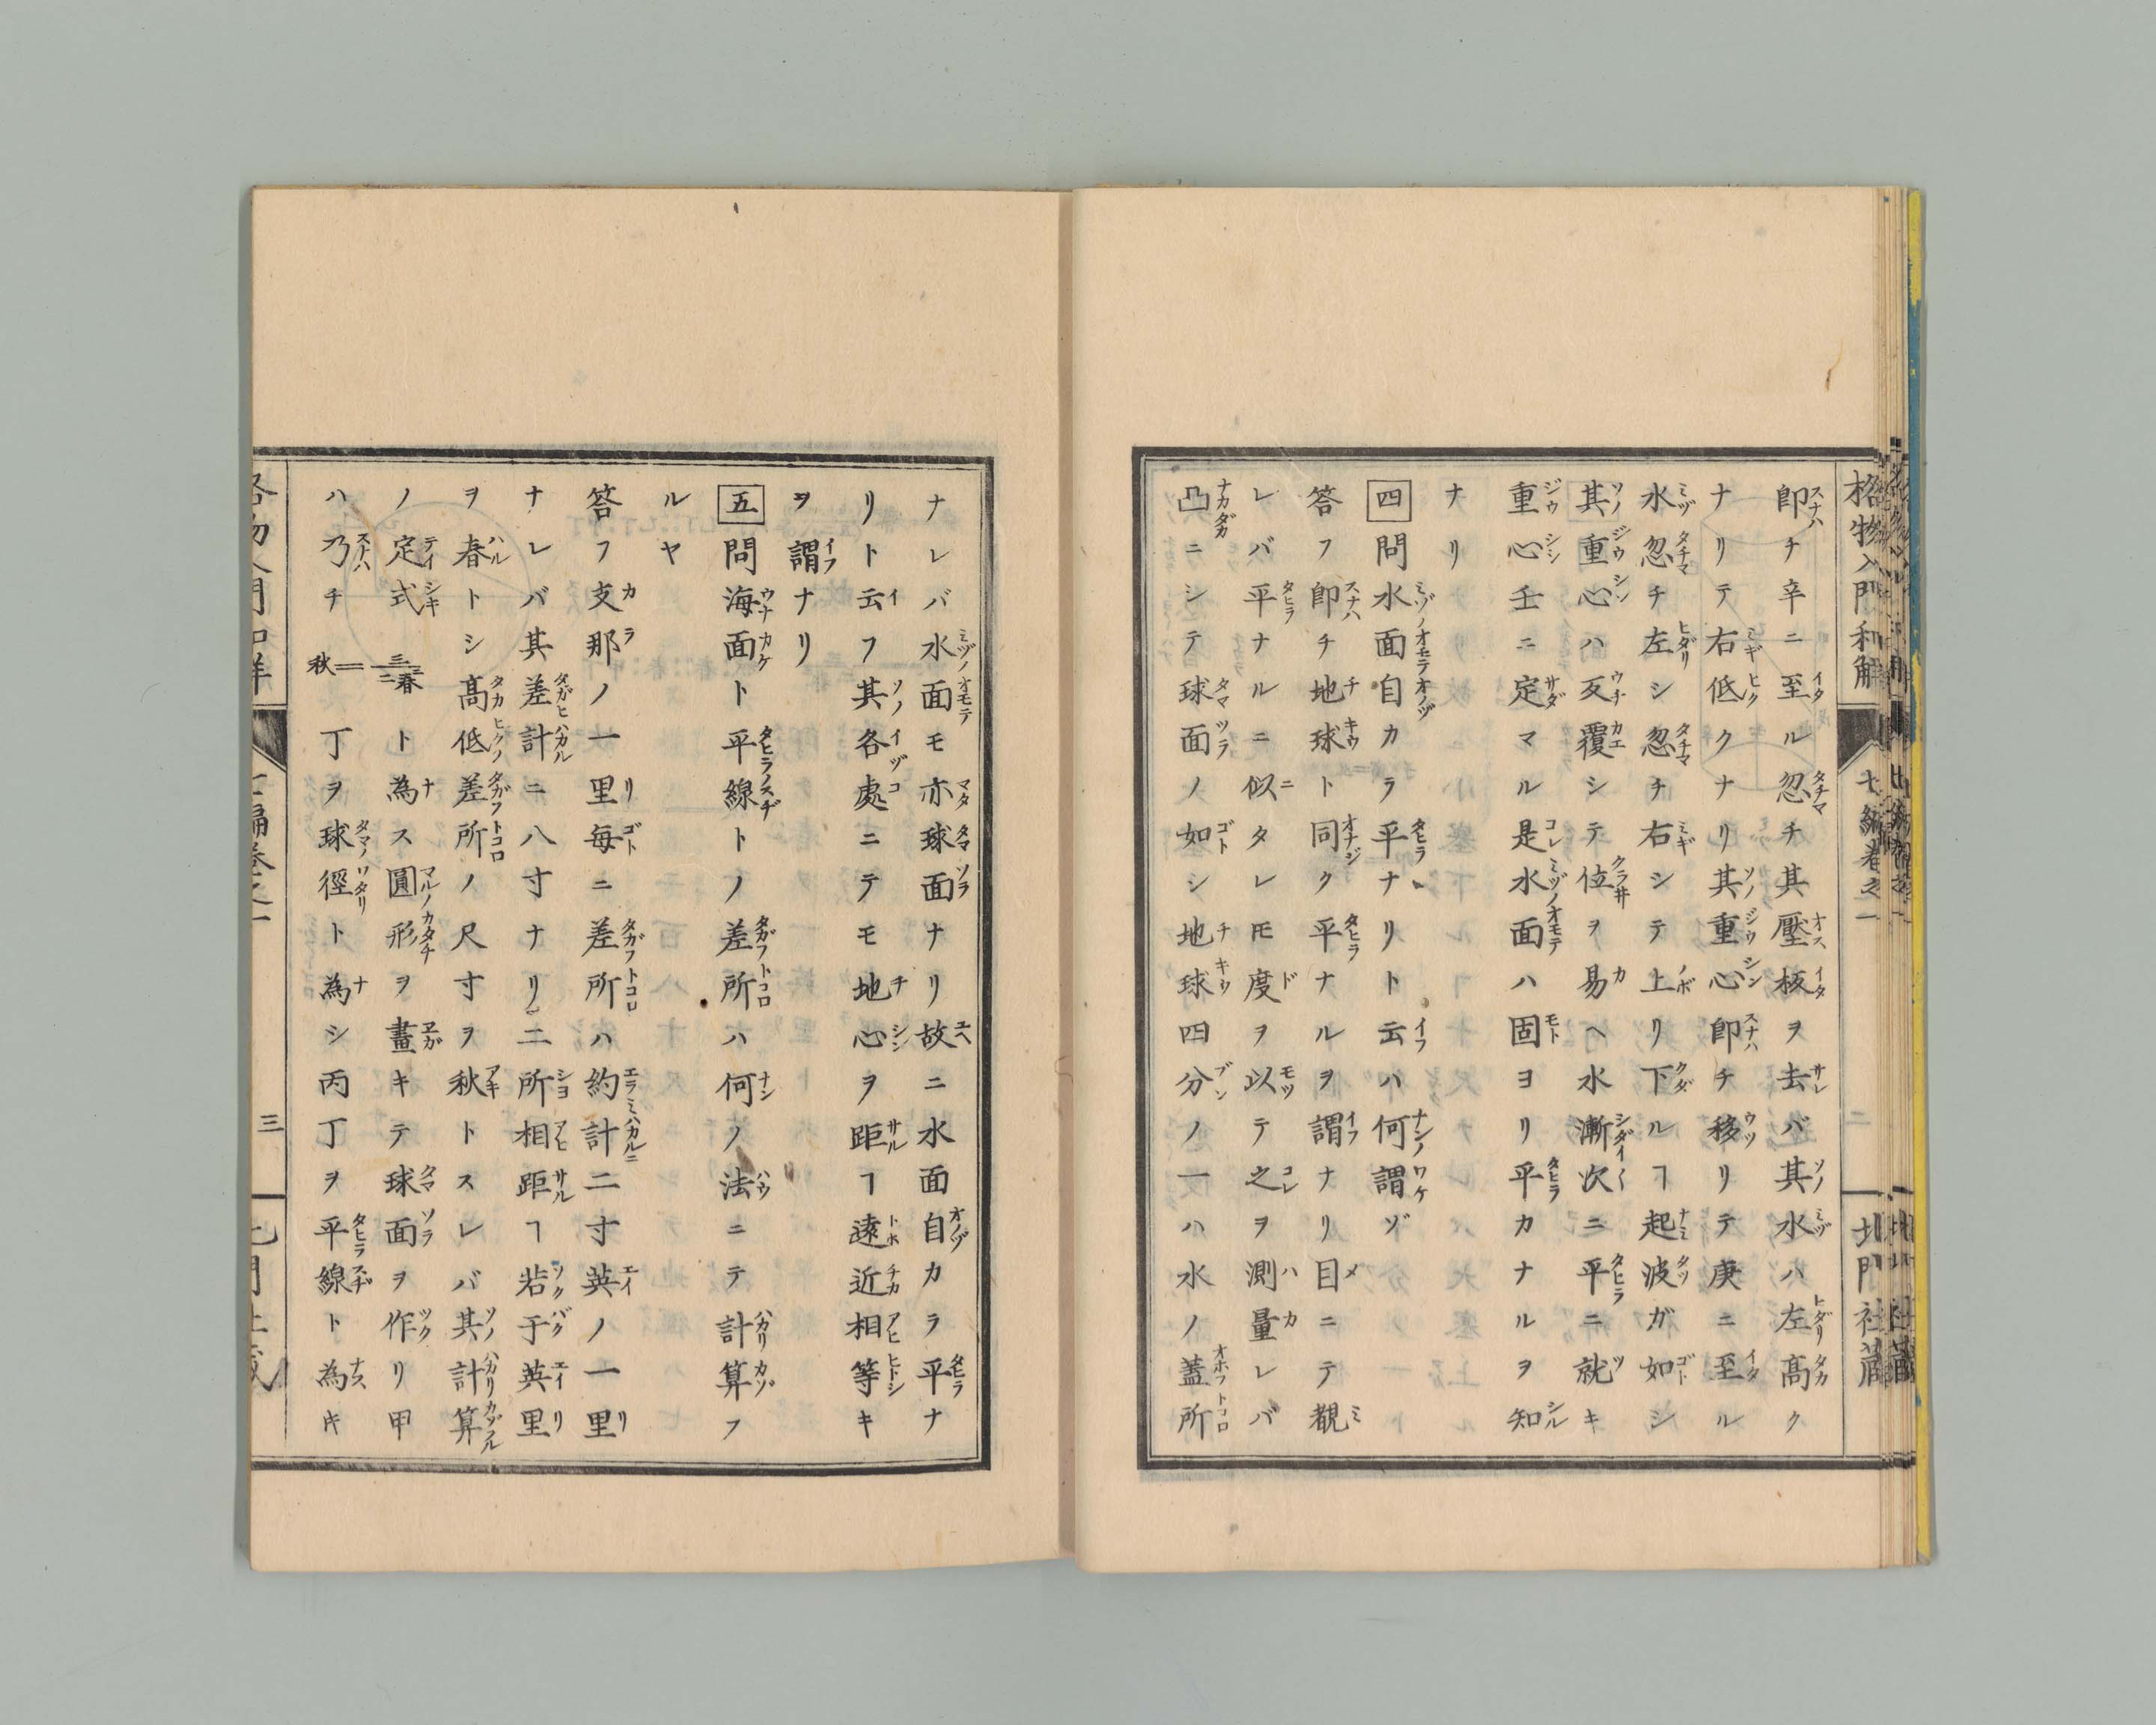 格物入門和解
七編卷之一
二
北門社蔵
即チ辛ニ至ル忽チ其壓板ヲ去レバ其水ハ左高ク
ナリテ右低クナリ其重心即チ移リテ庚ニ至ル
水忽チ左シ忽チ右シテ上リ下ルヿ起波ガ如シ
其重心ハ反覆シテ位ヲ易ヘ水漸次ニ平ニ就キ
重心壬ニ定マル是水面ハ固ヨリ平カナルヲ知
ナリ
四 問水面自カラ平ナリト云ハ何謂ゾ
答フ即チ地球ト同ク平ナルヲ謂ナリ目ニテ覩
レバ平ナルニ似タレ𪜈度ヲ以テ之ヲ測量レバ
凸ニシテ球面ノ如シ地球四分ノ一ハ水ノ蓋所
ナレバ水面モ亦球面ナリ故ニ水面自カラ平ナ
リト云フ其各處ニテモ地心ヲ距ルヿ遠近相等キ
ヲ謂ナリ
五 問海面ト平線トノ差所ハ何ノ法ニテ計算フ
ルヤ
答フ支那ノ一里每ニ差所ハ約計二寸英ノ一里
ナレバ其差計ニ八寸ナリ二所相距ルヿ若干英里
ヲ春トシ高低差所ノ尺寸ヲ秋トスレバ其計算
ノ定式 三二春 ト為ス圓形ヲ畫キテ球面ヲ作リ甲
ハ乃チ 秋＝ 丁ヲ球徑ト為シ丙丁ヲ平線ト為キ
三